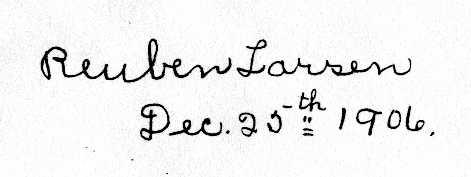 Reuben Larsen
Dec. 25th 1906.